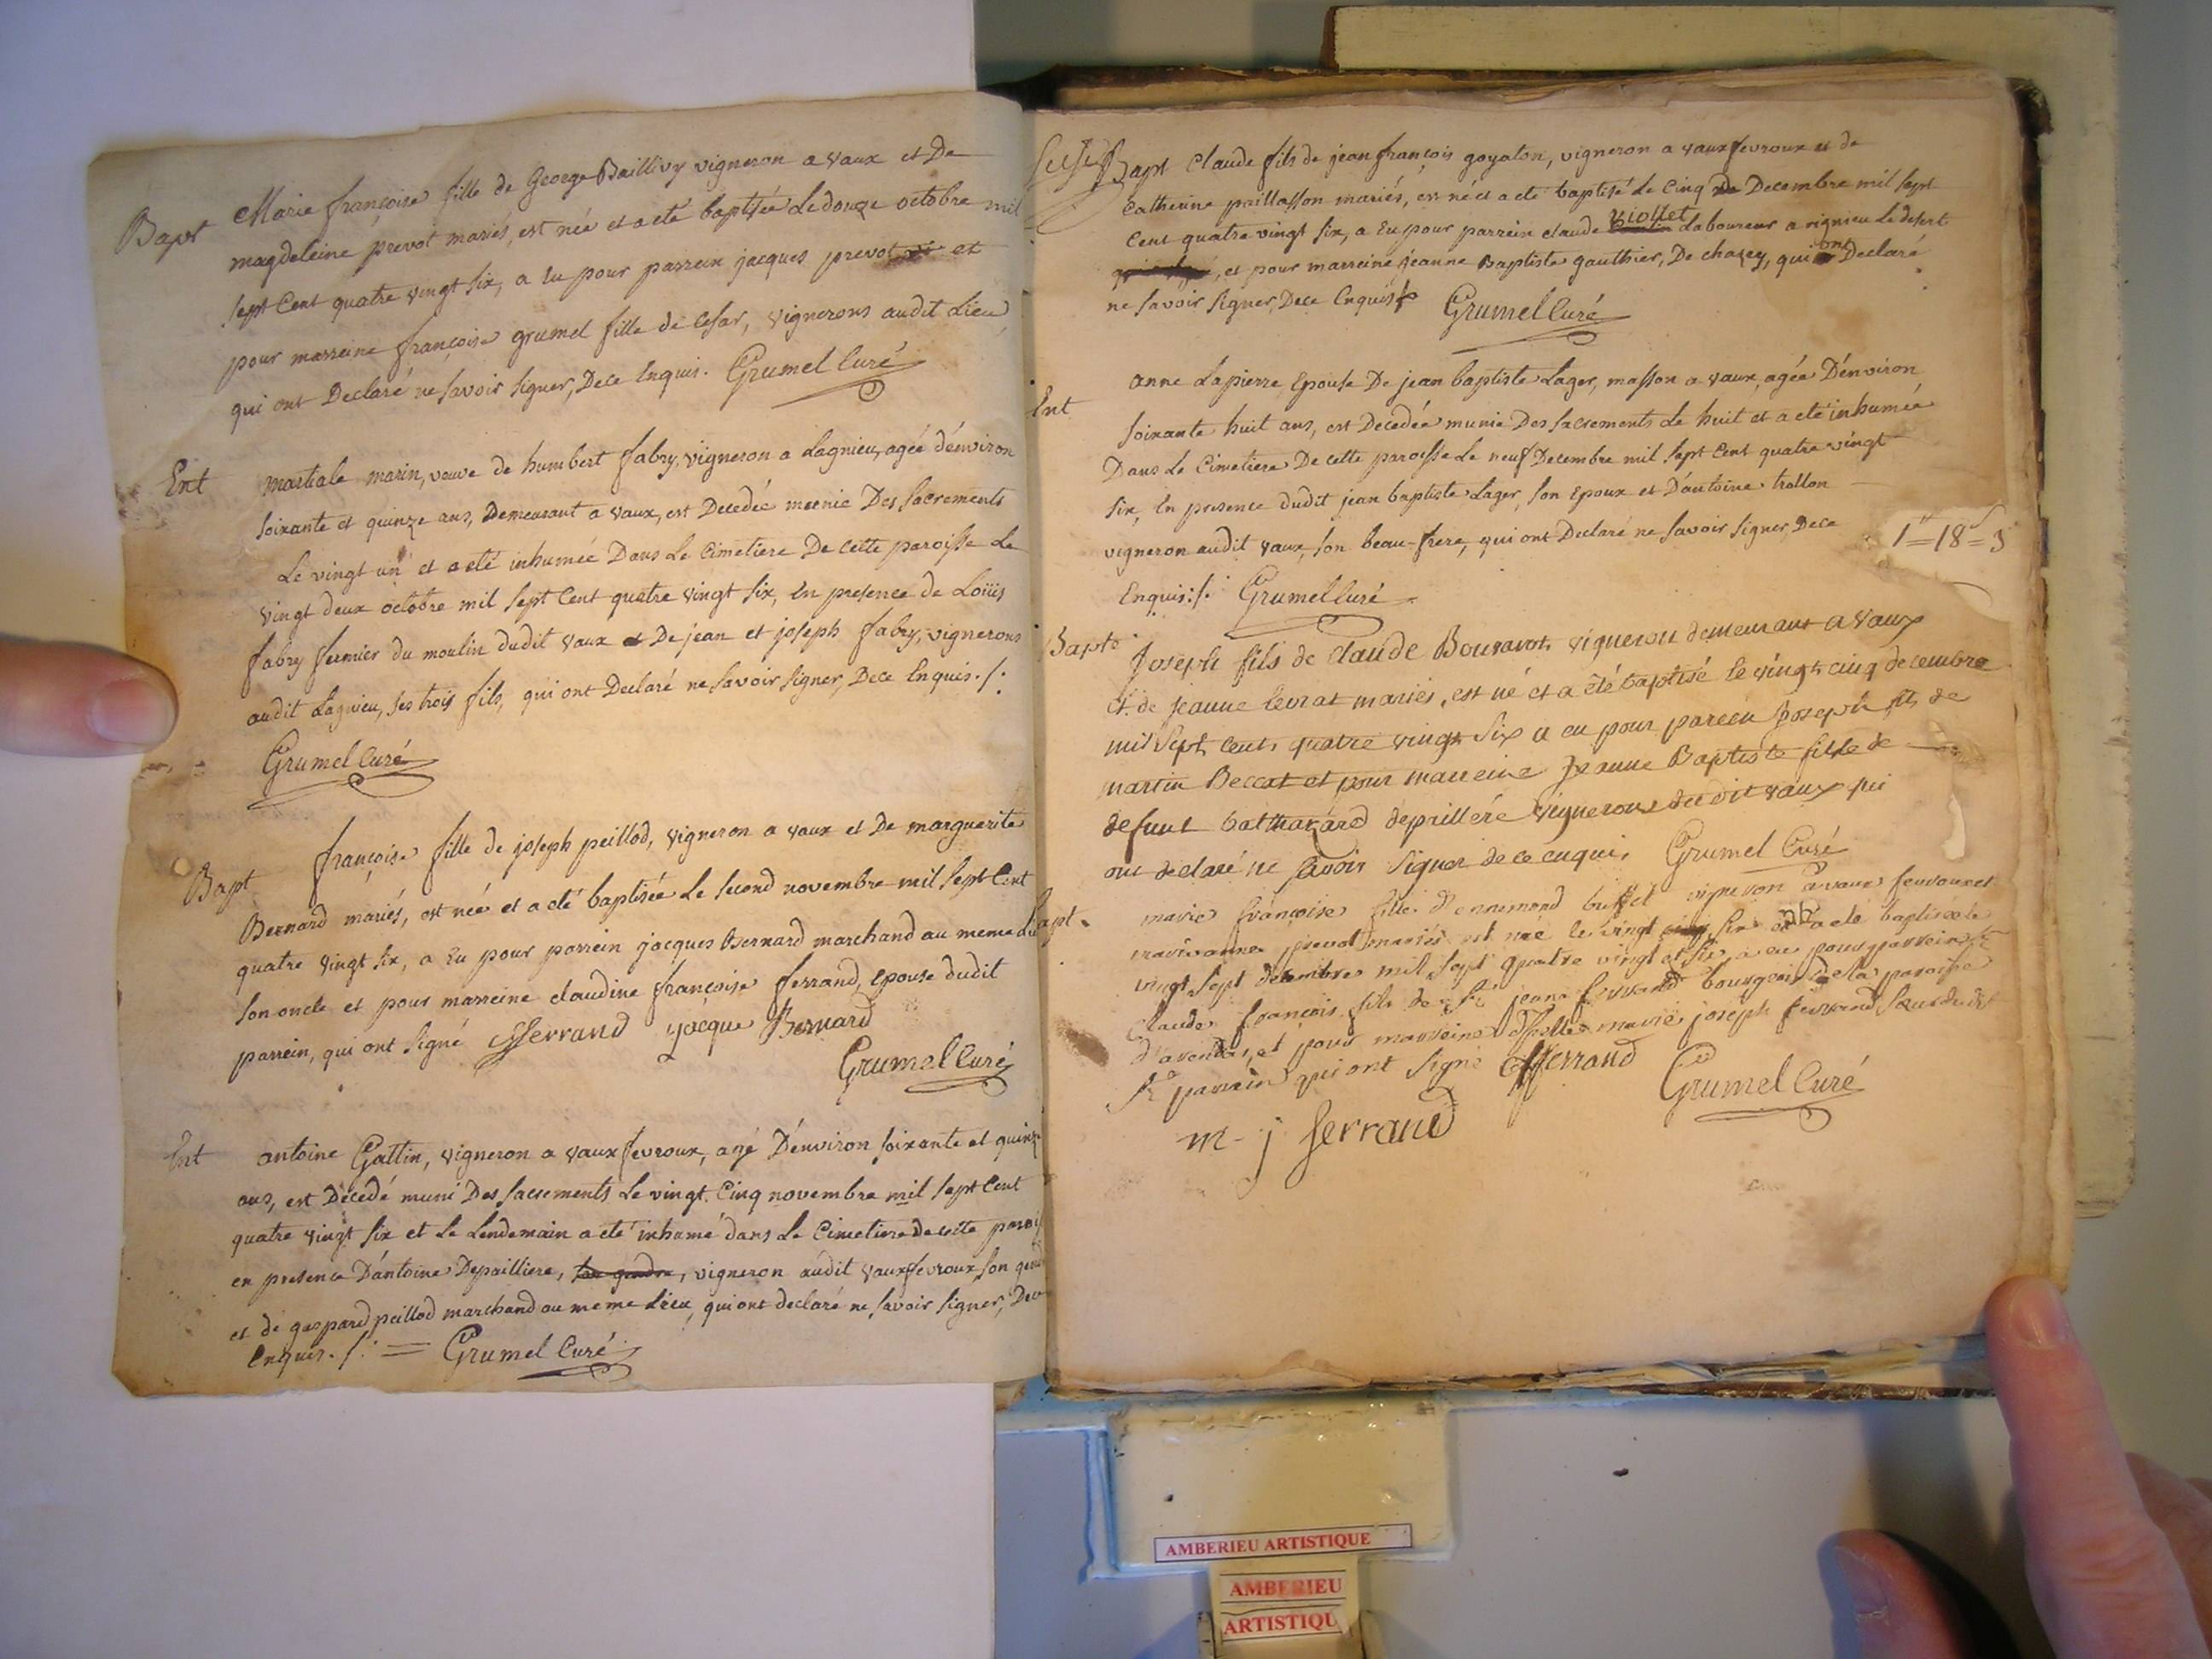 Bapt
Marie françoise fille de George Baillivy vigneron a vaux et De
magdeleine prevot mariés, est née et a eté baptisée Le douze octobre mil
sept Cent quatre vingt six, a Eu pour parrein jacques prevot et
pour marreine françoise grumel fille de Cesar, vignerons audit Lieu
qui ont Declaré ne savoir signer, De ce Enquis. Grumel Curé
Ent
martiale marin, veuve de humbert fabry, vigneron a Lagnieu, agée d'énviron
soixante et quinze ans, Demeurant a vaux, est Decedée munie Des sacrements
Le vingt un et a eté inhumée Dans Le Cimetiere De Cette paroisse Le
vingt deux octobre mil sept Cent quatre vingt six, En presence de Loüis
fabry fermier du moulin dudit vaux et De jean et joseph fabry, vignerons
audit Lagnieu, ses trois fils, qui ont Declaré ne savoir signer, De ce Enquis ./.
Grumel Curé
Bapt
françoise fille de joseph peillod, vigneron a vaux et De marguerite
Bernard mariés, est née et a eté baptisée Le second novembre mil sept Cent
quatre vingt six, a Eu pour parrein jacques Bernard marchand au meme
son oncle et pour marreine claudine françoise ferrand, Epouse dudit
parrein, qui ont signé Cfferrand jacque Bernard
Grumel Curé
Ent
antoine Gattin, vigneron a vaux fevroux, agé D'énviron soixante et quinze
ans, est Décedé muni Des sacrements Le vingt Cinq novembre mil sept Cent
quatre vingt six et Le Lendemain a eté inhumé dans Le Cimetiere de cette parois
en presence D'antoine Depailliere, son gendre, vigneron audit vaux fevroux son gend
et de gaspard peillod marchand au meme Lieu, qui ont declaré ne savoir signer, De ce
Enquis ./. = Grumel Curé
Bapt Claude fils de jean françois goyaton, vigneron a vaux fevroux et de
Catherine paillasson mariés, est né et a eté baptisé Le Cinq De Decembre mil sept
Cent quatre vingt six, a Eu pour parrein claude viollet Laboureur a rignieu Le desert
, et pour marreine jeanne Baptiste gauthier, De chazey, qui ont Declaré
ne savoir signer, De ce Enquis ./. Grumel Curé
Ent
anne Lapierre Epouse De jean baptiste Lager, masson a vaux, agée D'énviron
soixante huit ans, est Decedée munie Des sacrements Le huit et a eté inhumée
Dans Le Cimetiere De cette paroisse Le neuf Decembre mil sept Cent quatre vingt
six, En presence dudit jean baptiste Lager, son Epoux et D'antoine trollon
vigneron audit vaux, son beau-frere, qui ont Declaré ne savoir signer, De ce
Enquis ./. Grumel Curé
1 = 18 = 3
Bapt
joseph fils de claude Bouravot vigneron demeurant a vaux
et de jeanne levrat mariés, est né et a été baptisé le vingt cinq decembre
mil sept cent quatre vingt six a eu pour parein joseph fils de
martin Beccat et pour marreine jeanne Baptiste fille de
defunt balthazard depaillere vignerons dudit vaux qui
ont declaré ne savoir signer de ce enquis. Grumel Curé
Bapt.
marie françoise fille d'ennemond buffet vigneron a vaux fevroux et
marianne prevot mariés est née le vingt six et a eté baptisée le
vingt sept decembre mil sept quatre vingt et six, a eu pour parrein
claude françois fils de Sr jean ferrand bourgeois de la paroisse
et pour marreine marie joseph ferrand sœur dudit
Sr parrein qui ont signé Cfferrand Grumel Curé
m - j ferrand
AMBERIEU ARTISTIQUE
AMBERIEU
ARTISTIQU